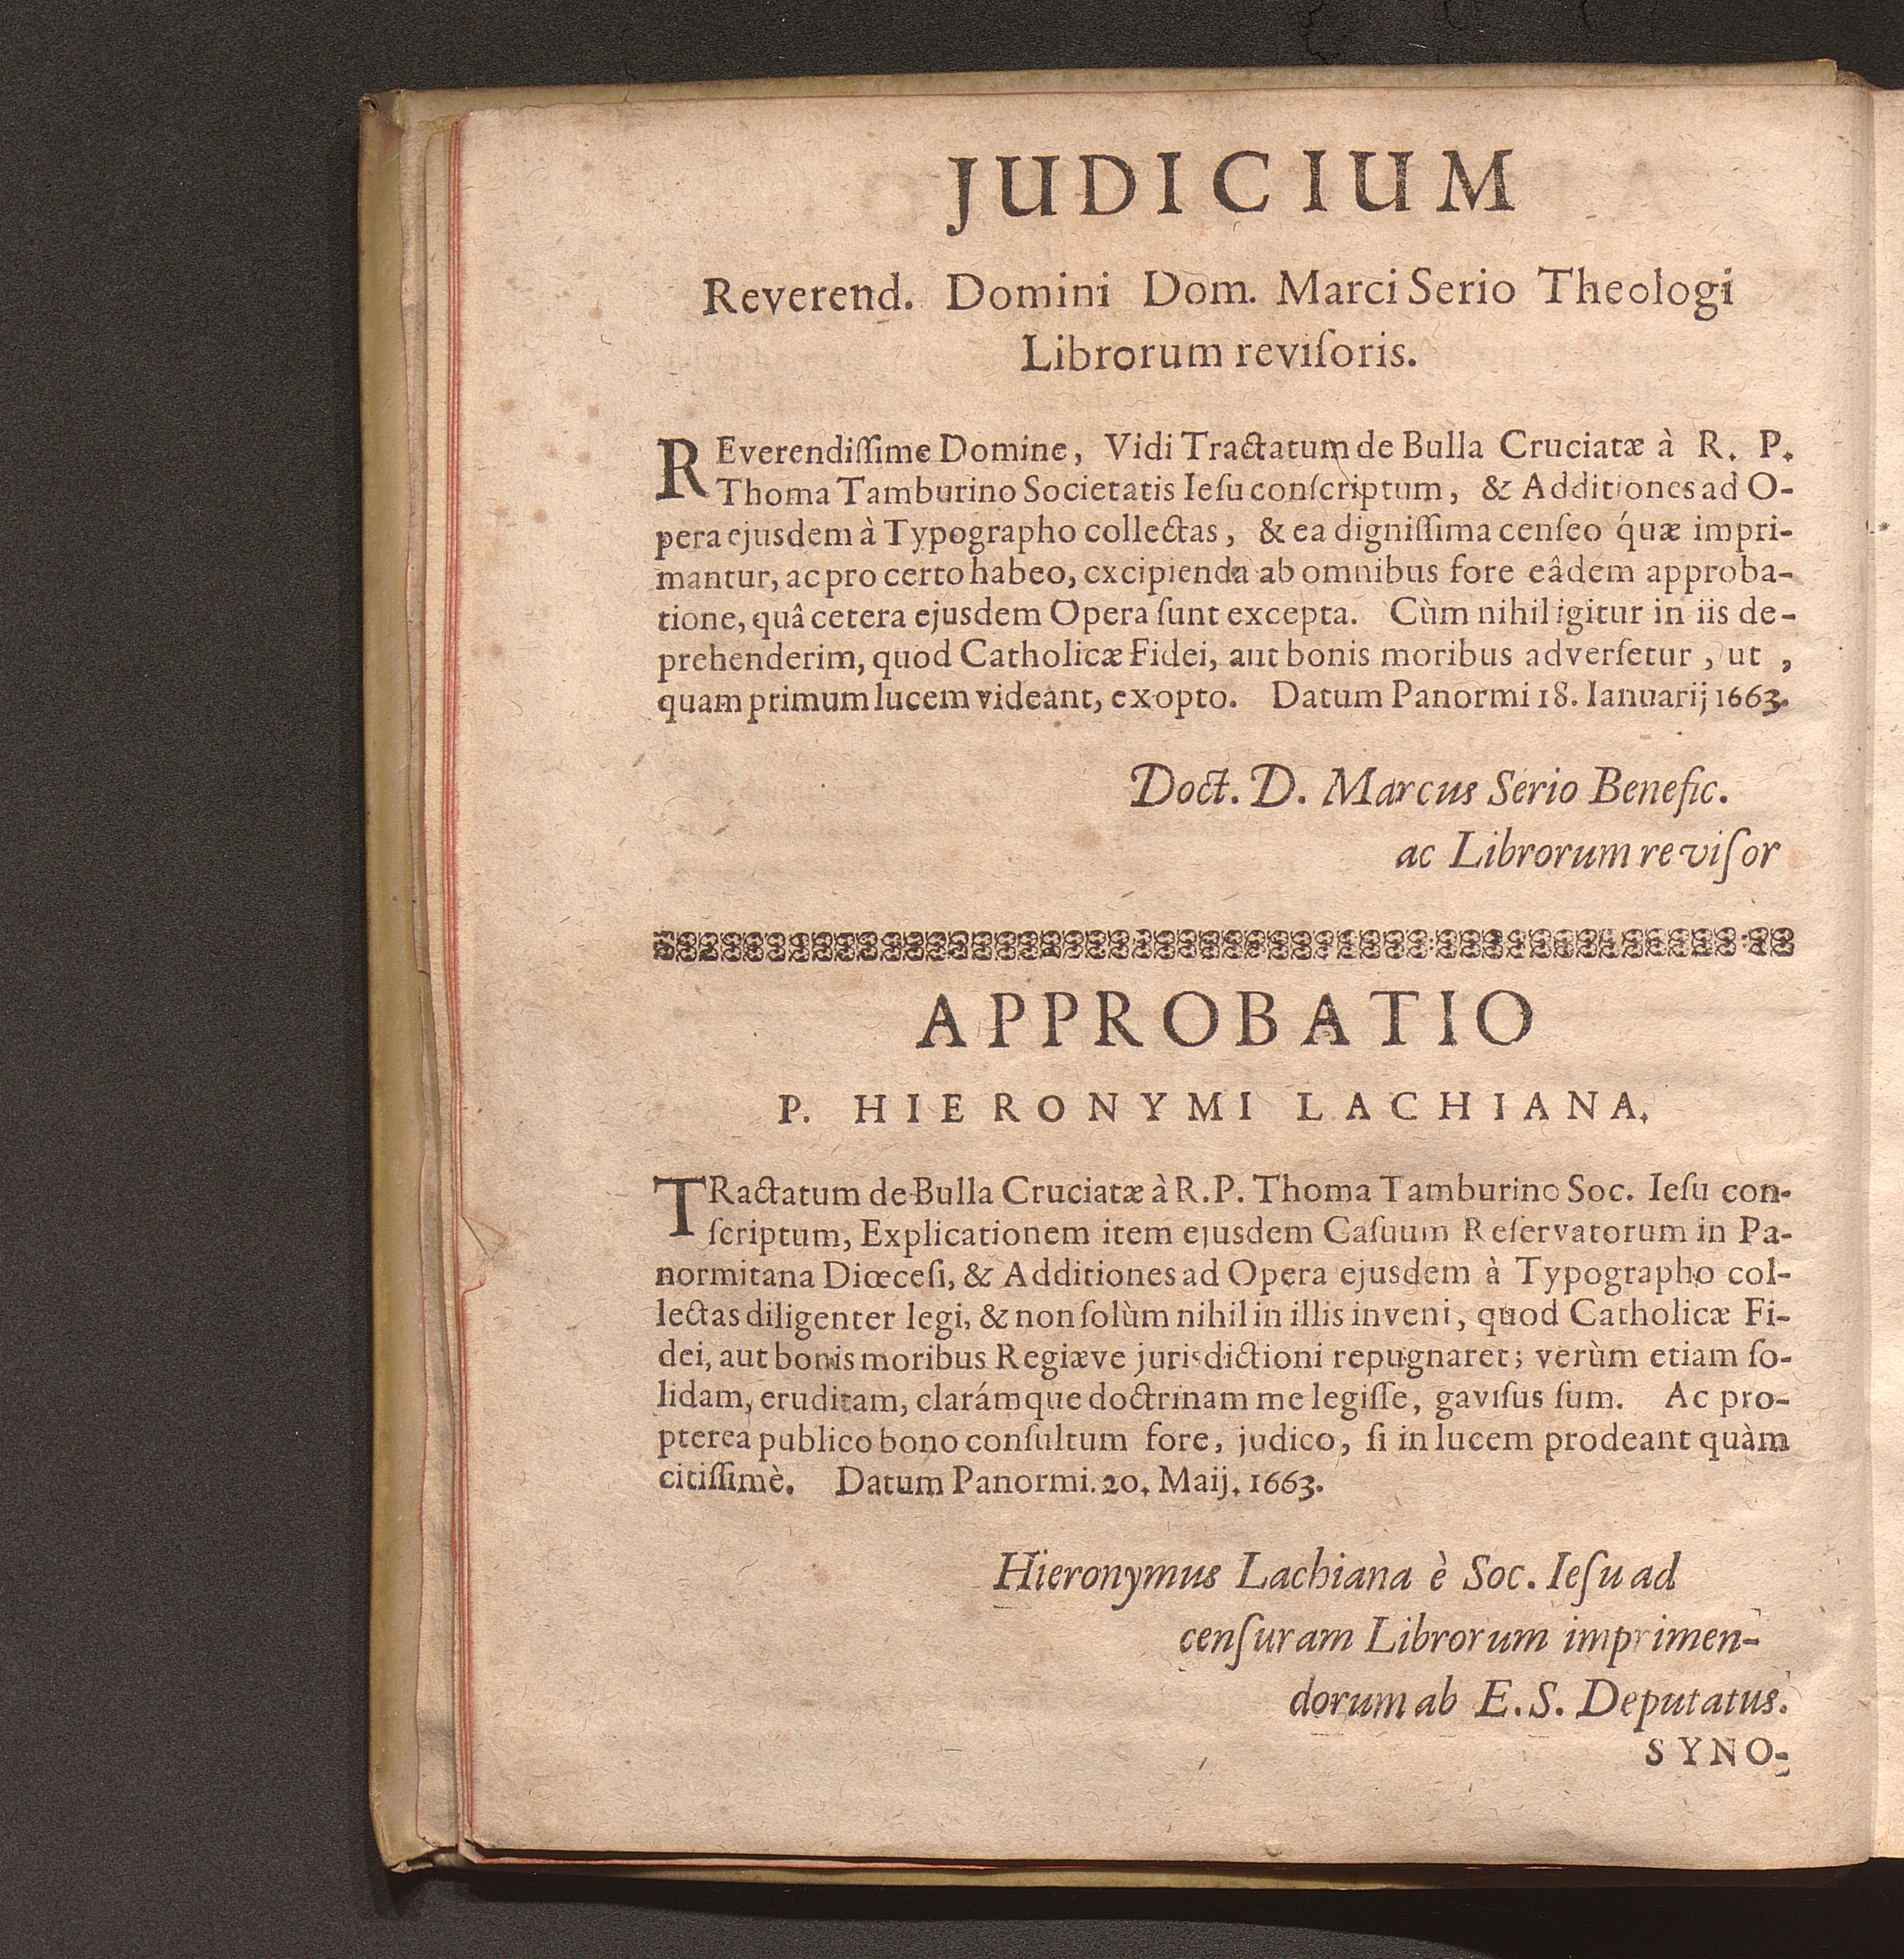 JUDICIUM
Reverend. Domini Dom. Marci Serio Theologi
Librorum reviſoris.
REverendiſſime Domine, Vidi Tractatum de Bulla Cruciatæ à R. P.
Thoma Tamburino Societatis Ieſu conſcriptum, & Additiones ad O-
pera ejusdem à Typographo collectas, & ea digniſſima cenſeo quæ impri-
mantur, ac pro certo habeo, excipienda ab omnibus fore eâdem approba-
tione, quâ cetera ejusdem Opera ſunt excepta. Cùm nihil igitur in iis de-
prehenderim, quod Catholicæ Fidei, aut bonis moribus adverſetur, ut,
quam primum lucem videant, exopto. Datum Panormi 18. Ianuarij 1663.
Doct. D. Marcus Serio Benefic.
ac Librorum reviſor
APPROBATIO
P. HIERONYMI LACHIANA.
TRactatum de Bulla Cruciatæ à R.P. Thoma Tamburino Soc. Ieſu con-
ſcriptum, Explicationem item ejusdem Caſuum Reſervatorum in Pa-
normitana Diœceſi, & Additiones ad Opera ejusdem à Typographo col-
lectas diligenter legi, & non ſolùm nihil in illis inveni, quod Catholicæ Fi-
dei, aut bonis moribus Regiæve jurisdictioni repugnaret; verùm etiam ſo-
lidam, eruditam, clarámque doctrinam me legiſſe, gaviſus ſum. Ac pro-
pterea publico bono conſultum fore, judico, ſi in lucem prodeant quàm
citiſſimè. Datum Panormi. 20. Maij. 1663.
Hieronymus Lachiana è Soc. Ieſu ad
cenſuram Librorum imprimen-
dorum ab E.S. Deputatus.
SYNO-